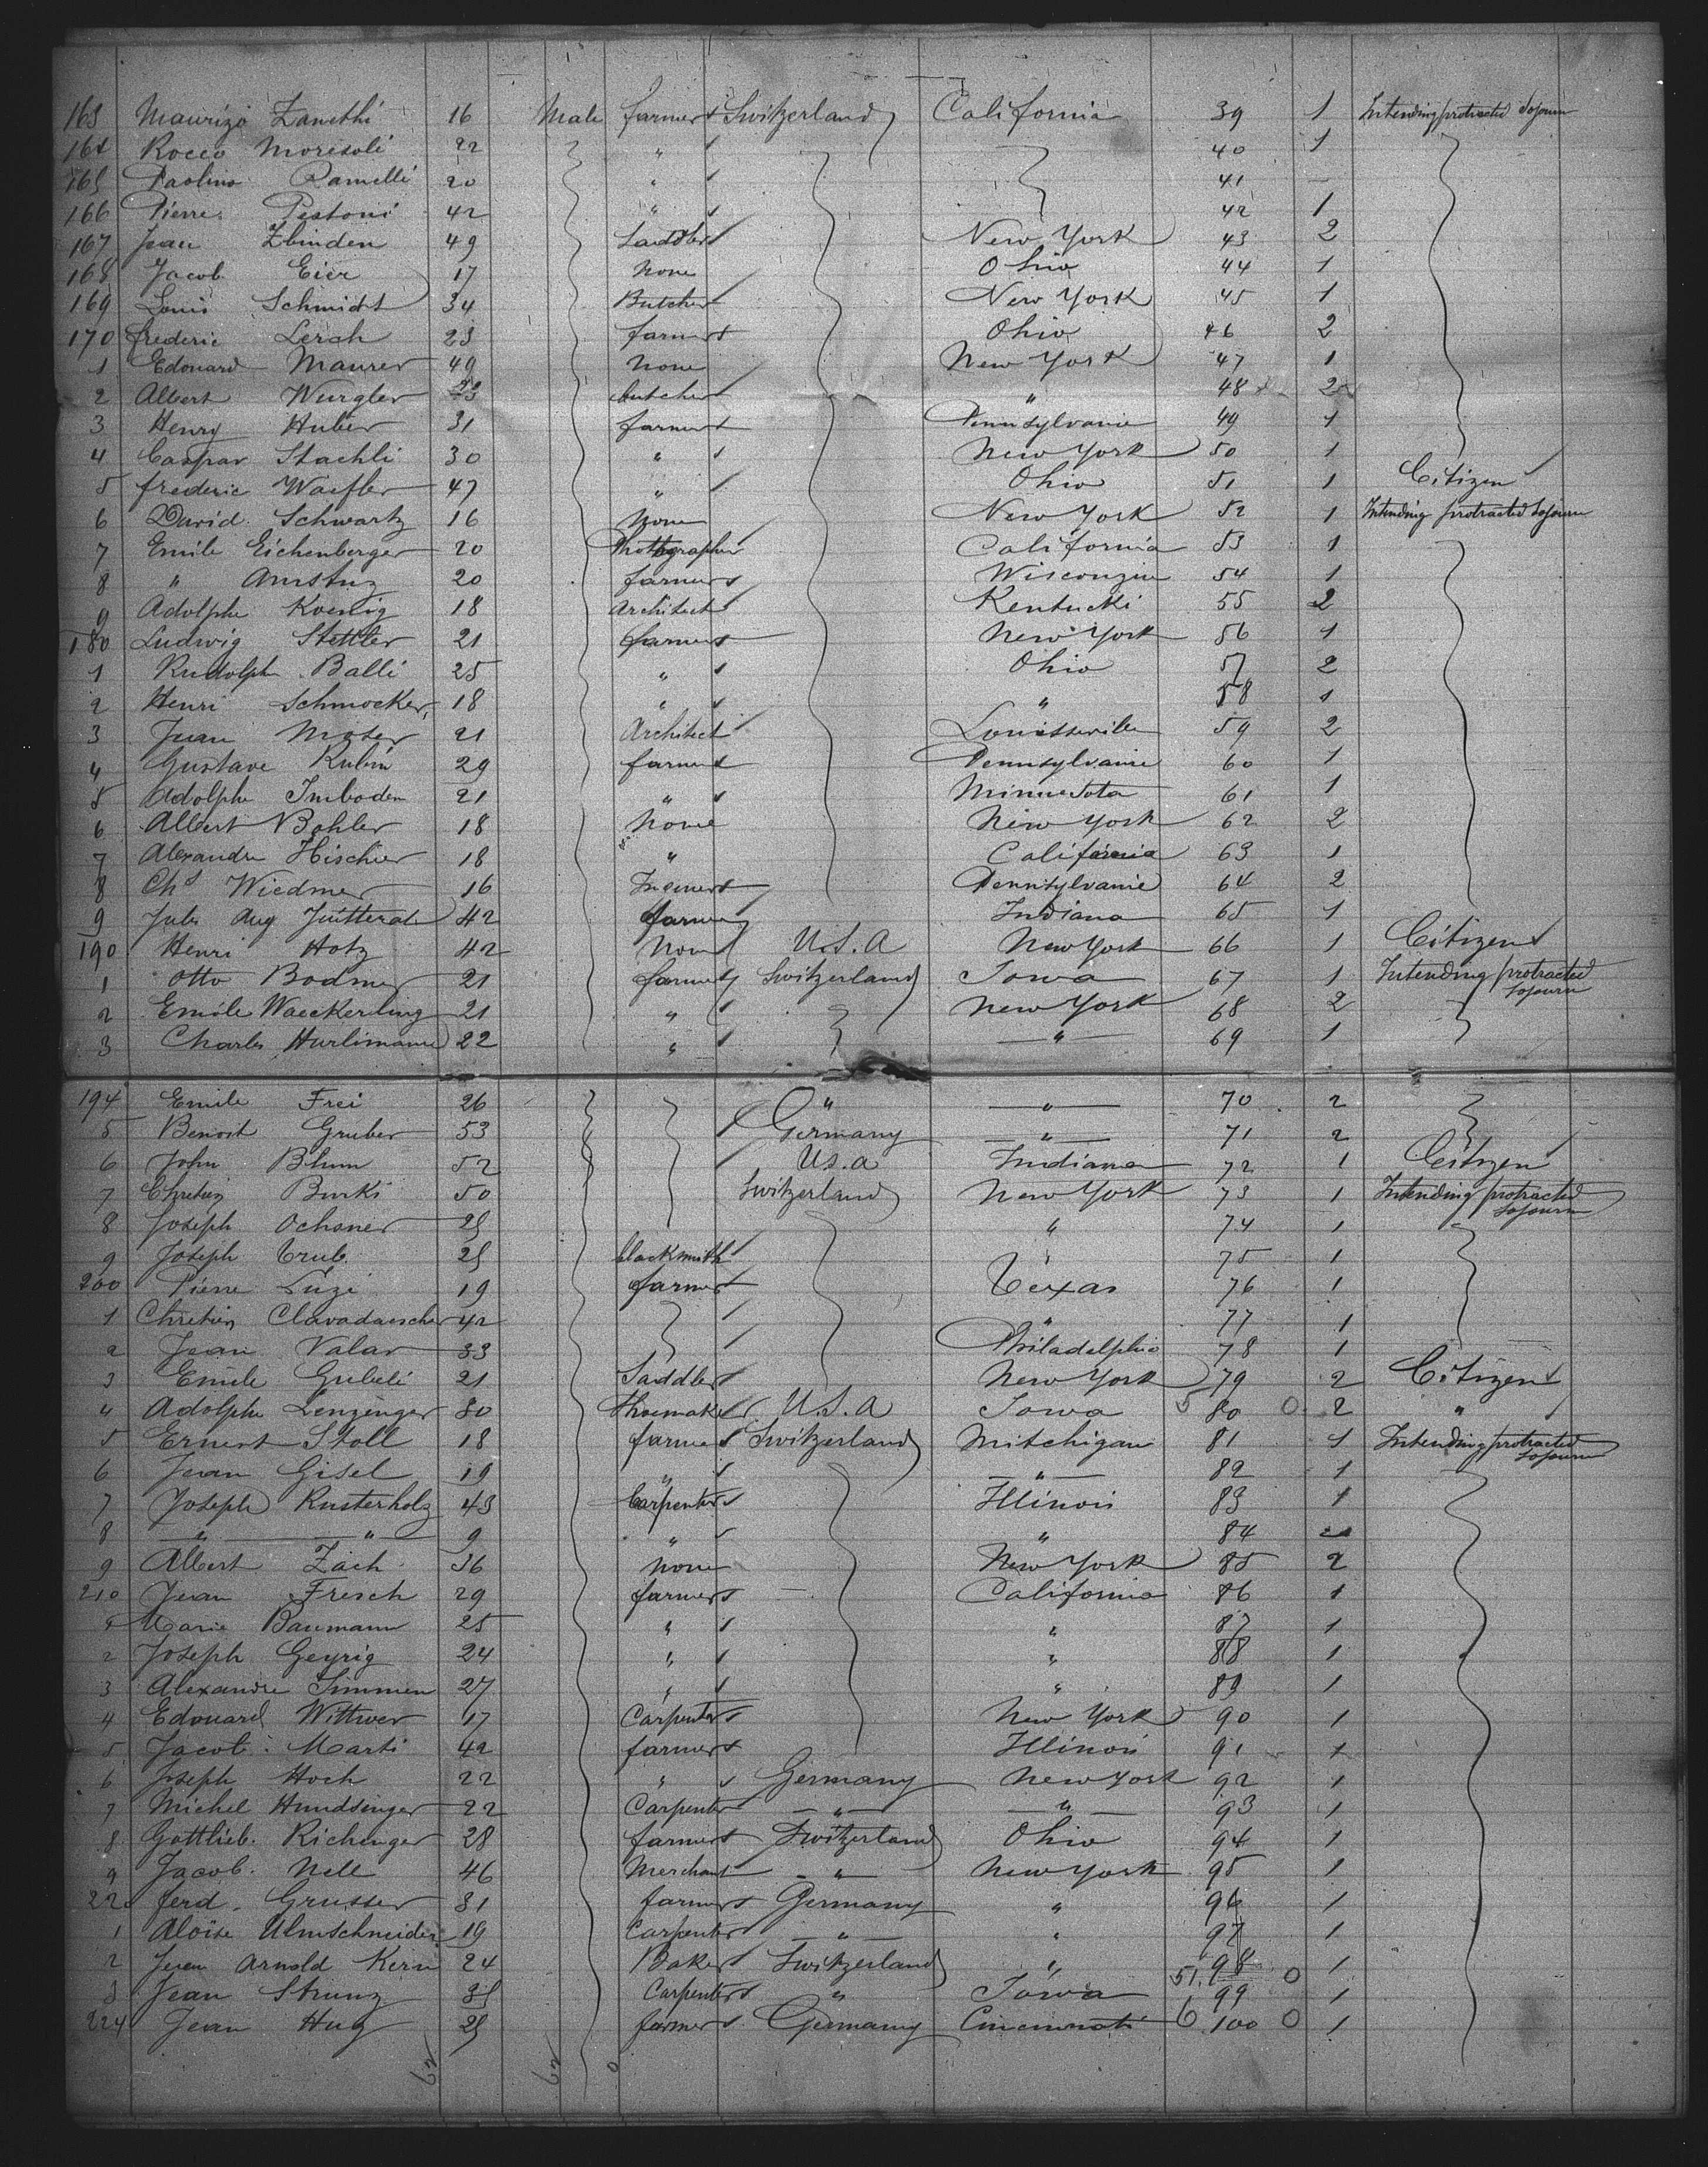 163 Maurizio Zanetti 16 Male farmer Switzerland California 39 1 Intending protracted Sojourn
164 Rocco Moresoli 22 " 40 1
165 Paolino Ramelli 20 " 41 —
166 Pierre Pestoni 42 " 42 1
167 Jean Zbinden 49 Saddler New York 43 2
168 Jacob Eier 17 None Ohio 44 1
169 Louis Schmidt 34 Butcher New York 45 1
170 frederic Lerch 23 farmer Ohio 46 2
1 Edouard Maurer 49 None New York 47 1
2 Albert Wurgler 23 butcher " 48 2
3 Henry Huber 31 farmer Pennsylvanie 49 1
4 Caspar Stachli 30 " New York 50 1
5 frederic Waefler 47 " Ohio 51 1 Citizen
6 David Schwartz 16 None New York 52 1 Intending protracted Sojourn
7 Emile Eichenberger 20 Photographer California 53 1
8 " Amstuz 20 farmer Wisconzin 54 1
9 Adolphe Koenig 18 Architect Kentucki 55 2
180 Ludwig Stettler 21 farmer New York 56 1
1 Rudolph Balli 25 " Ohio 57 2
2 Henri Schmocker 18 " " 58 1
3 Jean Moser 21 Architect Louisseville 59 2
4 Gustave Rubin 29 farmer Pennsylvanie 60 1
5 Adolphe Imboden 21 " Minnesota 61 1
6 Albert Bohler 18 None New York 62 2
7 Alexandre Hischier 18 " California 63 1
8 Chs Wiedmer 16 Pennsylvanie 64 2
9 Jules Aug 42 farmer Indiana 65 1
190 Henri Hotz 42 None U.S.A New York 66 1 Citizen
1 Otto Bodmer 21 farmer Switzerland Iowa 67 1 Intending protracted Sojourn
2 Emile Waeckerling 21 " New York 68 2
3 Charles Hurlimann 22 " " 69 1
194 Emile Frei 26 " " 70 2
5 Benoit Gruber 53 Germany " 71 2
6 John Blum 52 U.S.A Indiana 72 1 Citizen
7 Chretien Burki 50 Switzerland New York 73 1 Intending protracted Sojourn
8 Joseph Ochsner 25 " 74 1
9 Joseph Trub 25 blacksmith " 75 1
200 Pierre Luzi 19 farmer Texas 76 1
1 Chretien Clavadaescher 42 " 77 1
2 Jean Valar 33 Philadelphia 78 1
3 Emile Gubeli 21 Saddler New York 79 2 Citizen
4 Adolphe Lenzinger 30 Shoemaker U.S.A Iowa 5 80 0 2 "
5 Ernest Stoll 18 farmer Switzerland Mitchigan 81 1 Intending protracted Sojourn
6 Jean Gisel 19 " " 82 1
7 Joseph Rusterholz 43 Carpenter Illinois 83 1
8 " " 9 " " 84
9 Albert Zach 36 None New York 85 2
210 Jean Fresch 29 farmer California 86 1
1 Marie Baumann 25 " " 87 1
2 Joseph Geyrig 24 " " 88 1
3 Alexandre Simmen 27 " " 89 1
4 Edouard Wittwer 17 Carpenter New York 90 1
5 Jacob Marti 42 farmer Illinois 91 1
6 Joseph Hoch 22 " Germany New York 92 1
7 Michel Hundsinger 22 Carpenter " " 93 1
8 Gottlieb Richinger 28 farmer Switzerland Ohio 94 1
9 Jacob Nell 46 Merchant " New York 95 1
220 ferd. Grusser 31 farmer Germany " 96 1
1 Aloise Ulmschneider 19 Carpenter " " 97 1
2 Jean Arnold Kern 24 Baker Switzerland " 98 1
3 Jean Strunz 35 Carpenter " Iowa 51 99 0 1
224 Jean Hug 25 farmer Germany Cincinnati 6 100 0 1
62 62 0